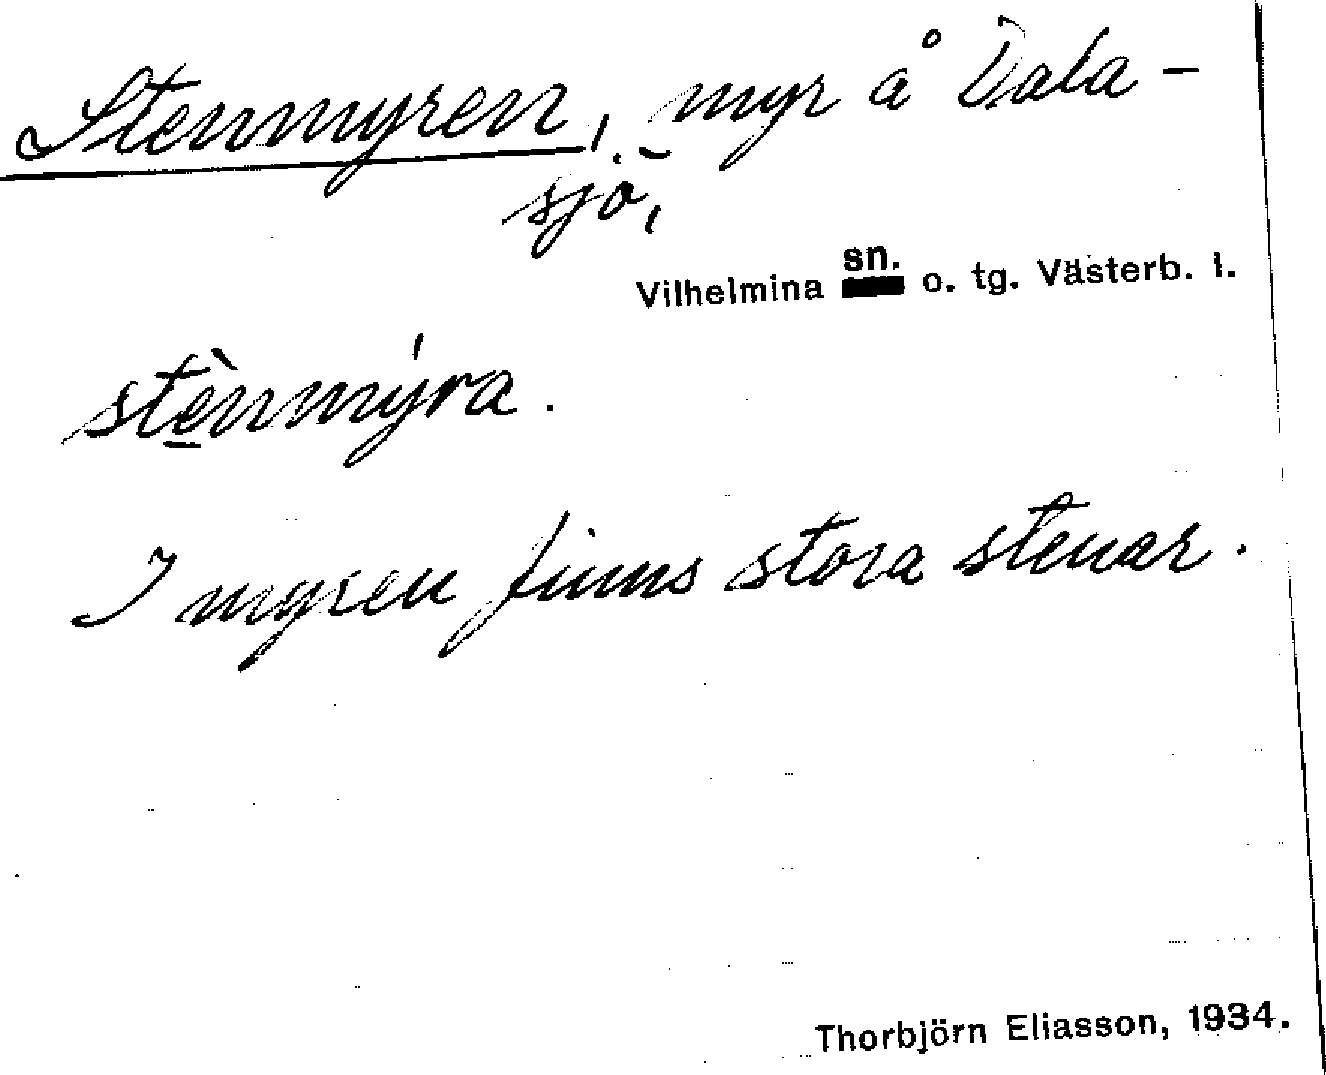 Stenmyren, myr å Dala-
sjö,
Vilhelmina sn. o. tg. Västerb. l.
stè̲nmýra.
I myren finns stora stenar.
Thorbjörn Eliasson, 1934.